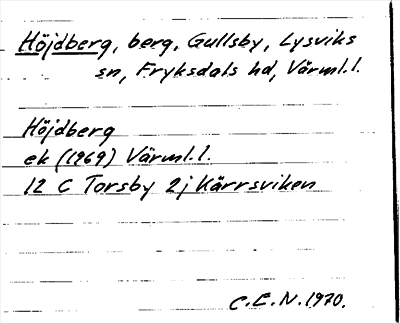 Höjdberg, berg, Gullsby, Lysviks
sn, Fryksdals hd, Värml. l.
Höjdberg
ek (1969) Värml. l.
12 C Torsby 2j Kärrsviken
C.E.N. 1970.